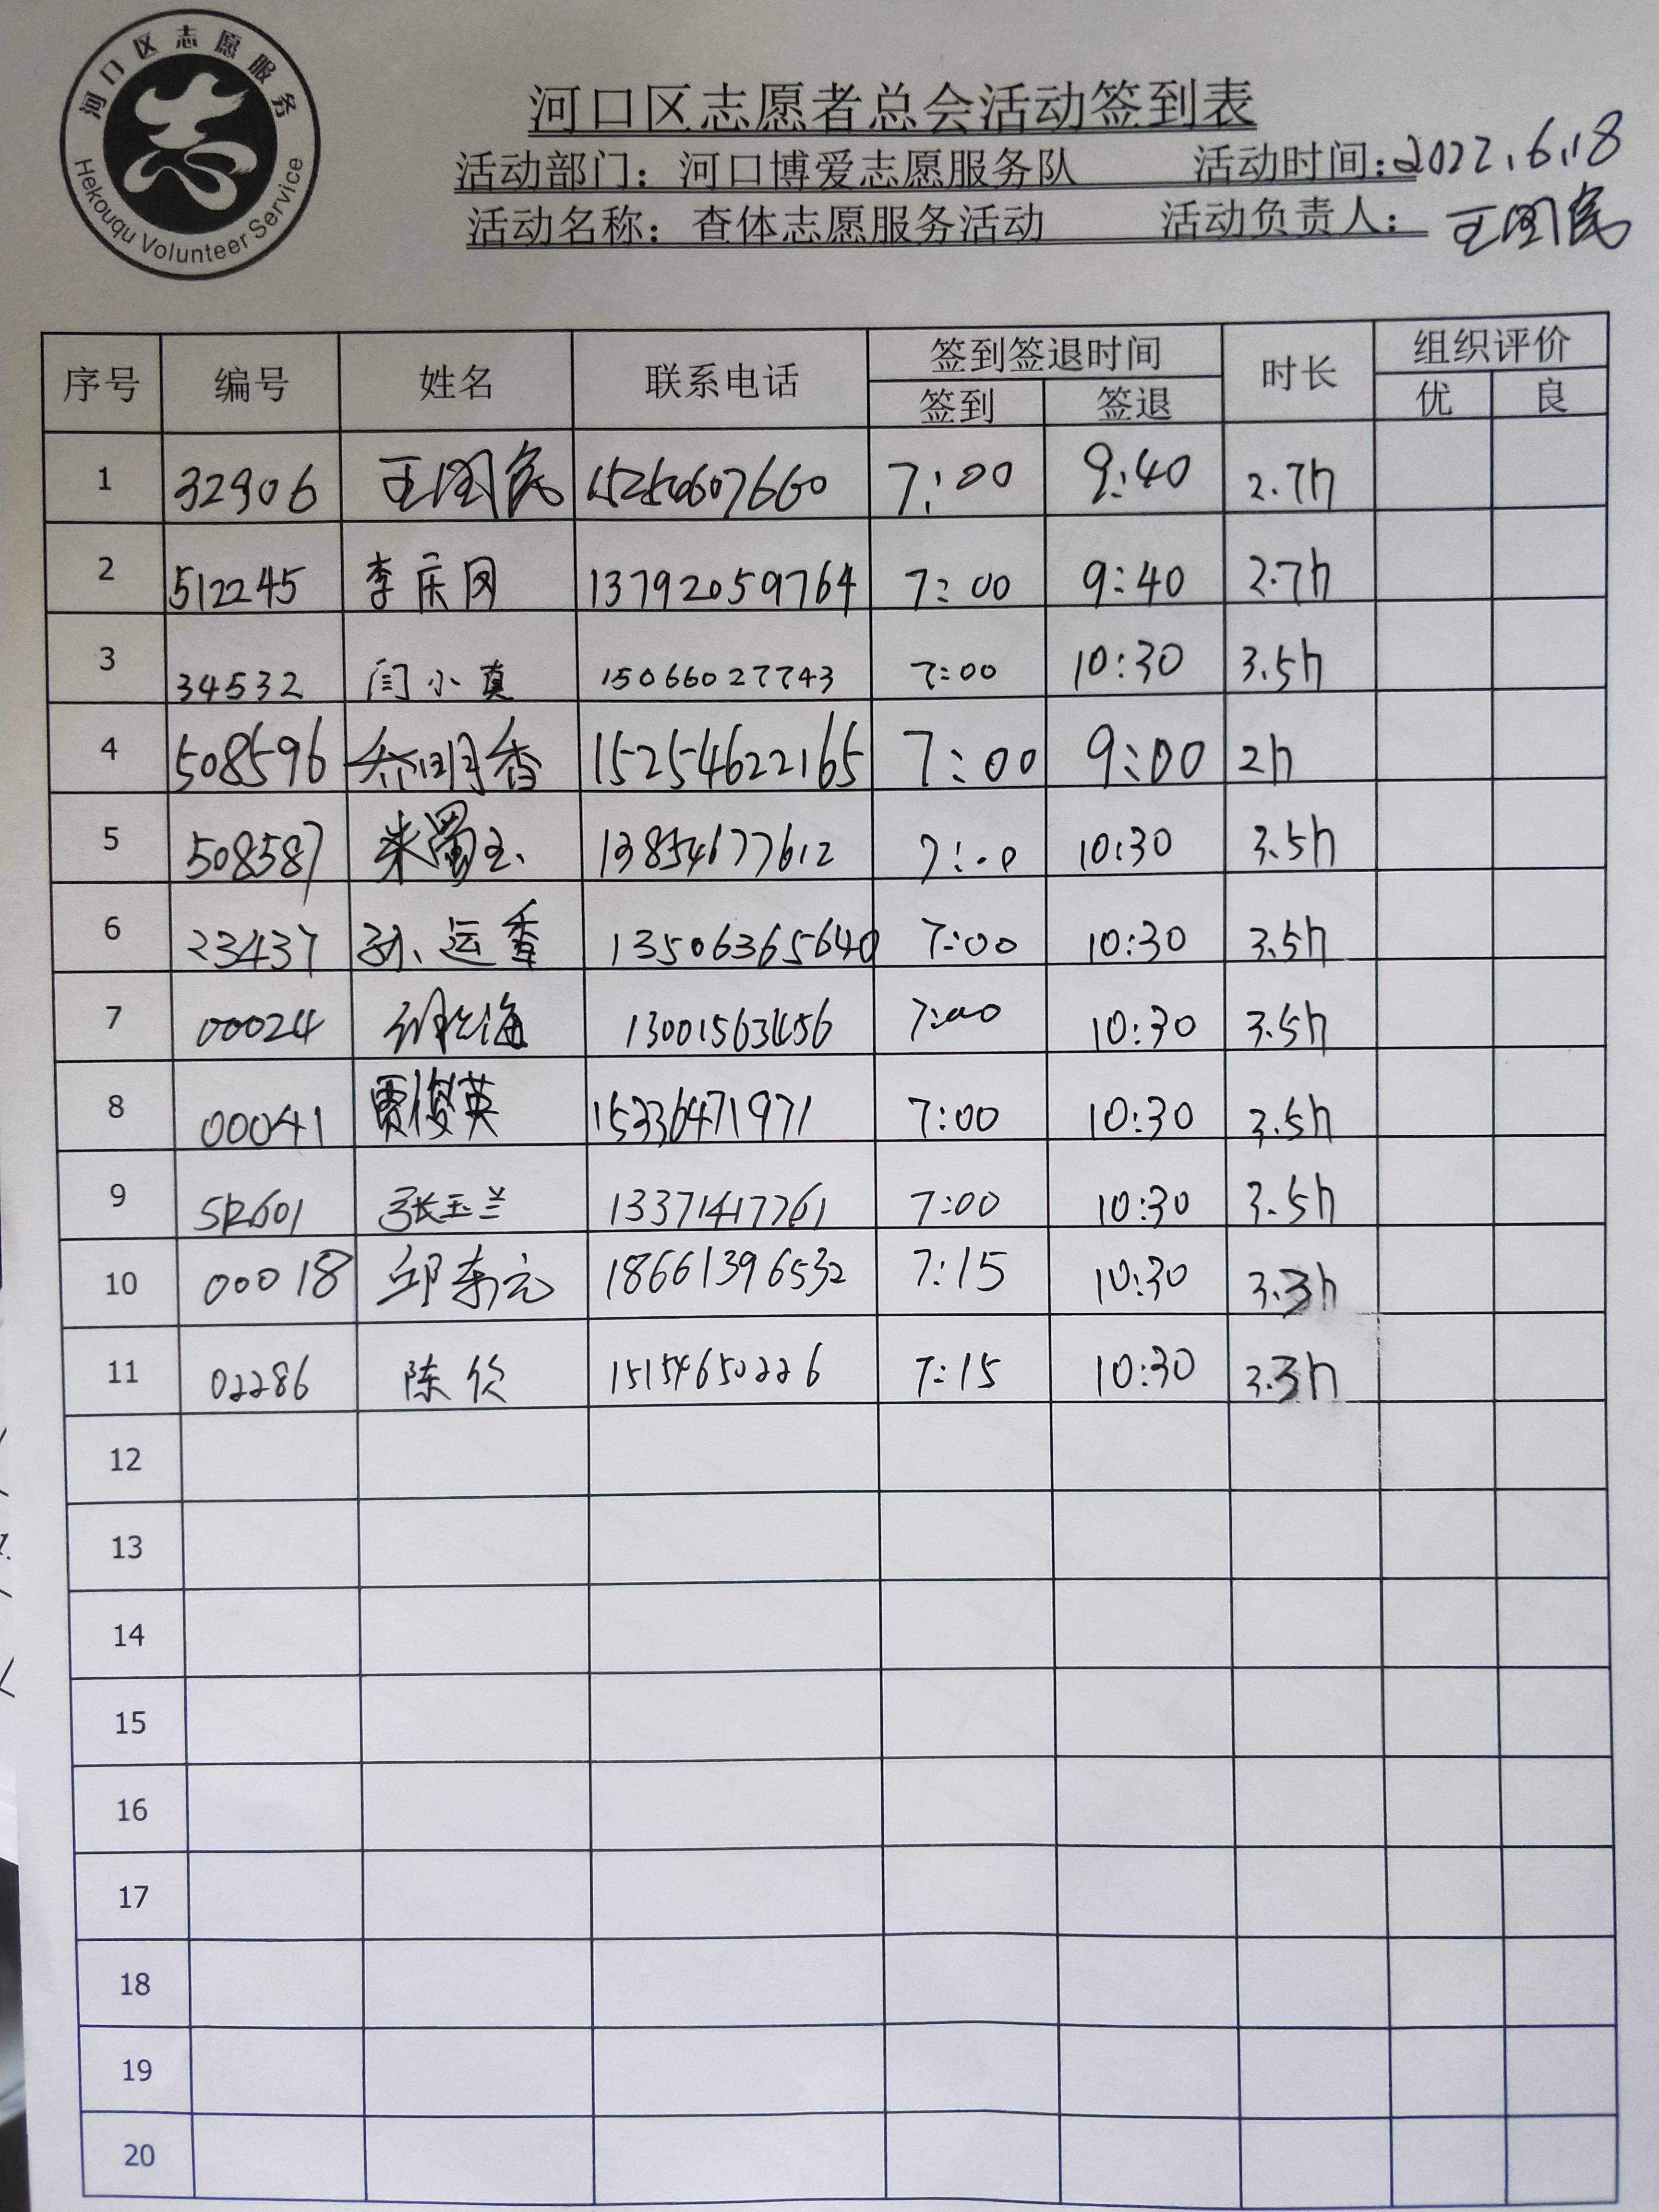 河口区志愿服务
Hekouqu Volunteer Service
河口区志愿者总会活动签到表
活动部门：河口博爱志愿服务队 活动时间：2022.6.18
活动名称：查体志愿服务活动 活动负责人：王图民
序号 编号 姓名 联系电话 签到签退时间 时长 组织评价
签到 签退 优 良
1 32906 王图民 7:00 9:40 2.7h
2 512245 李庆风 13792059764 7:00 9:40 2.7h
3 34532 闫小真 15066027743 7:00 10:30 3.5h
4 508596 乔明香 15254622165 7:00 9:00 2h
5 508587 13854677612 7:00 10:30 3.5h
6 23437 孙运香 13506365640 7:00 10:30 3.5h
7 00024 13001563456 7:00 10:30 3.5h
8 00041 贾俊英 15336471971 7:00 10:30 3.5h
9 张玉兰 13371417761 7:00 10:30 3.5h
10 00018 邱东元 18661396532 7:15 10:30 3.3h
11 02286 陈 15154650226 7:15 10:30 3.3h
12
13
14
15
16
17
18
19
20